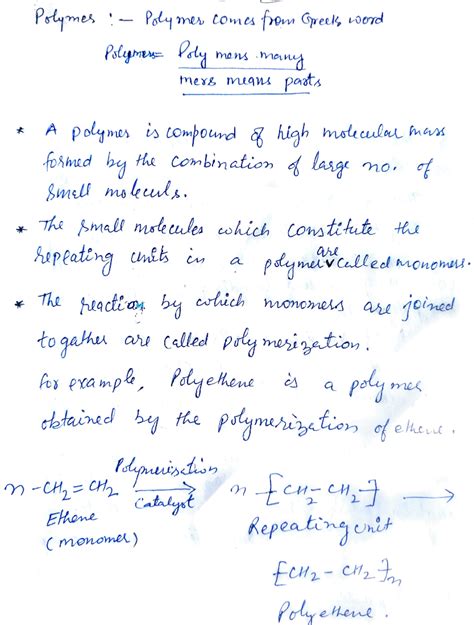 Polymer :- Polymer comes from Greek word
Polymer = Poly mens many
mers means parts
* A polymer is compound of high molecular mass
formed by the combination of large no. of
small moleculs.
* The small molecules which constitute the
repeating units in a polymer are called monomers.
* The reaction by which monomers are joined
togather are called polymerization.
for example, Polyethene is a polymer
obtained by the polymerization of ethene.
n -CH2=CH2 Polymerisation Catalyst n -[CH2-CH2-]
Ethene
(monomer)
Repeating unit
-[CH2-CH2-]n
Polyethene.